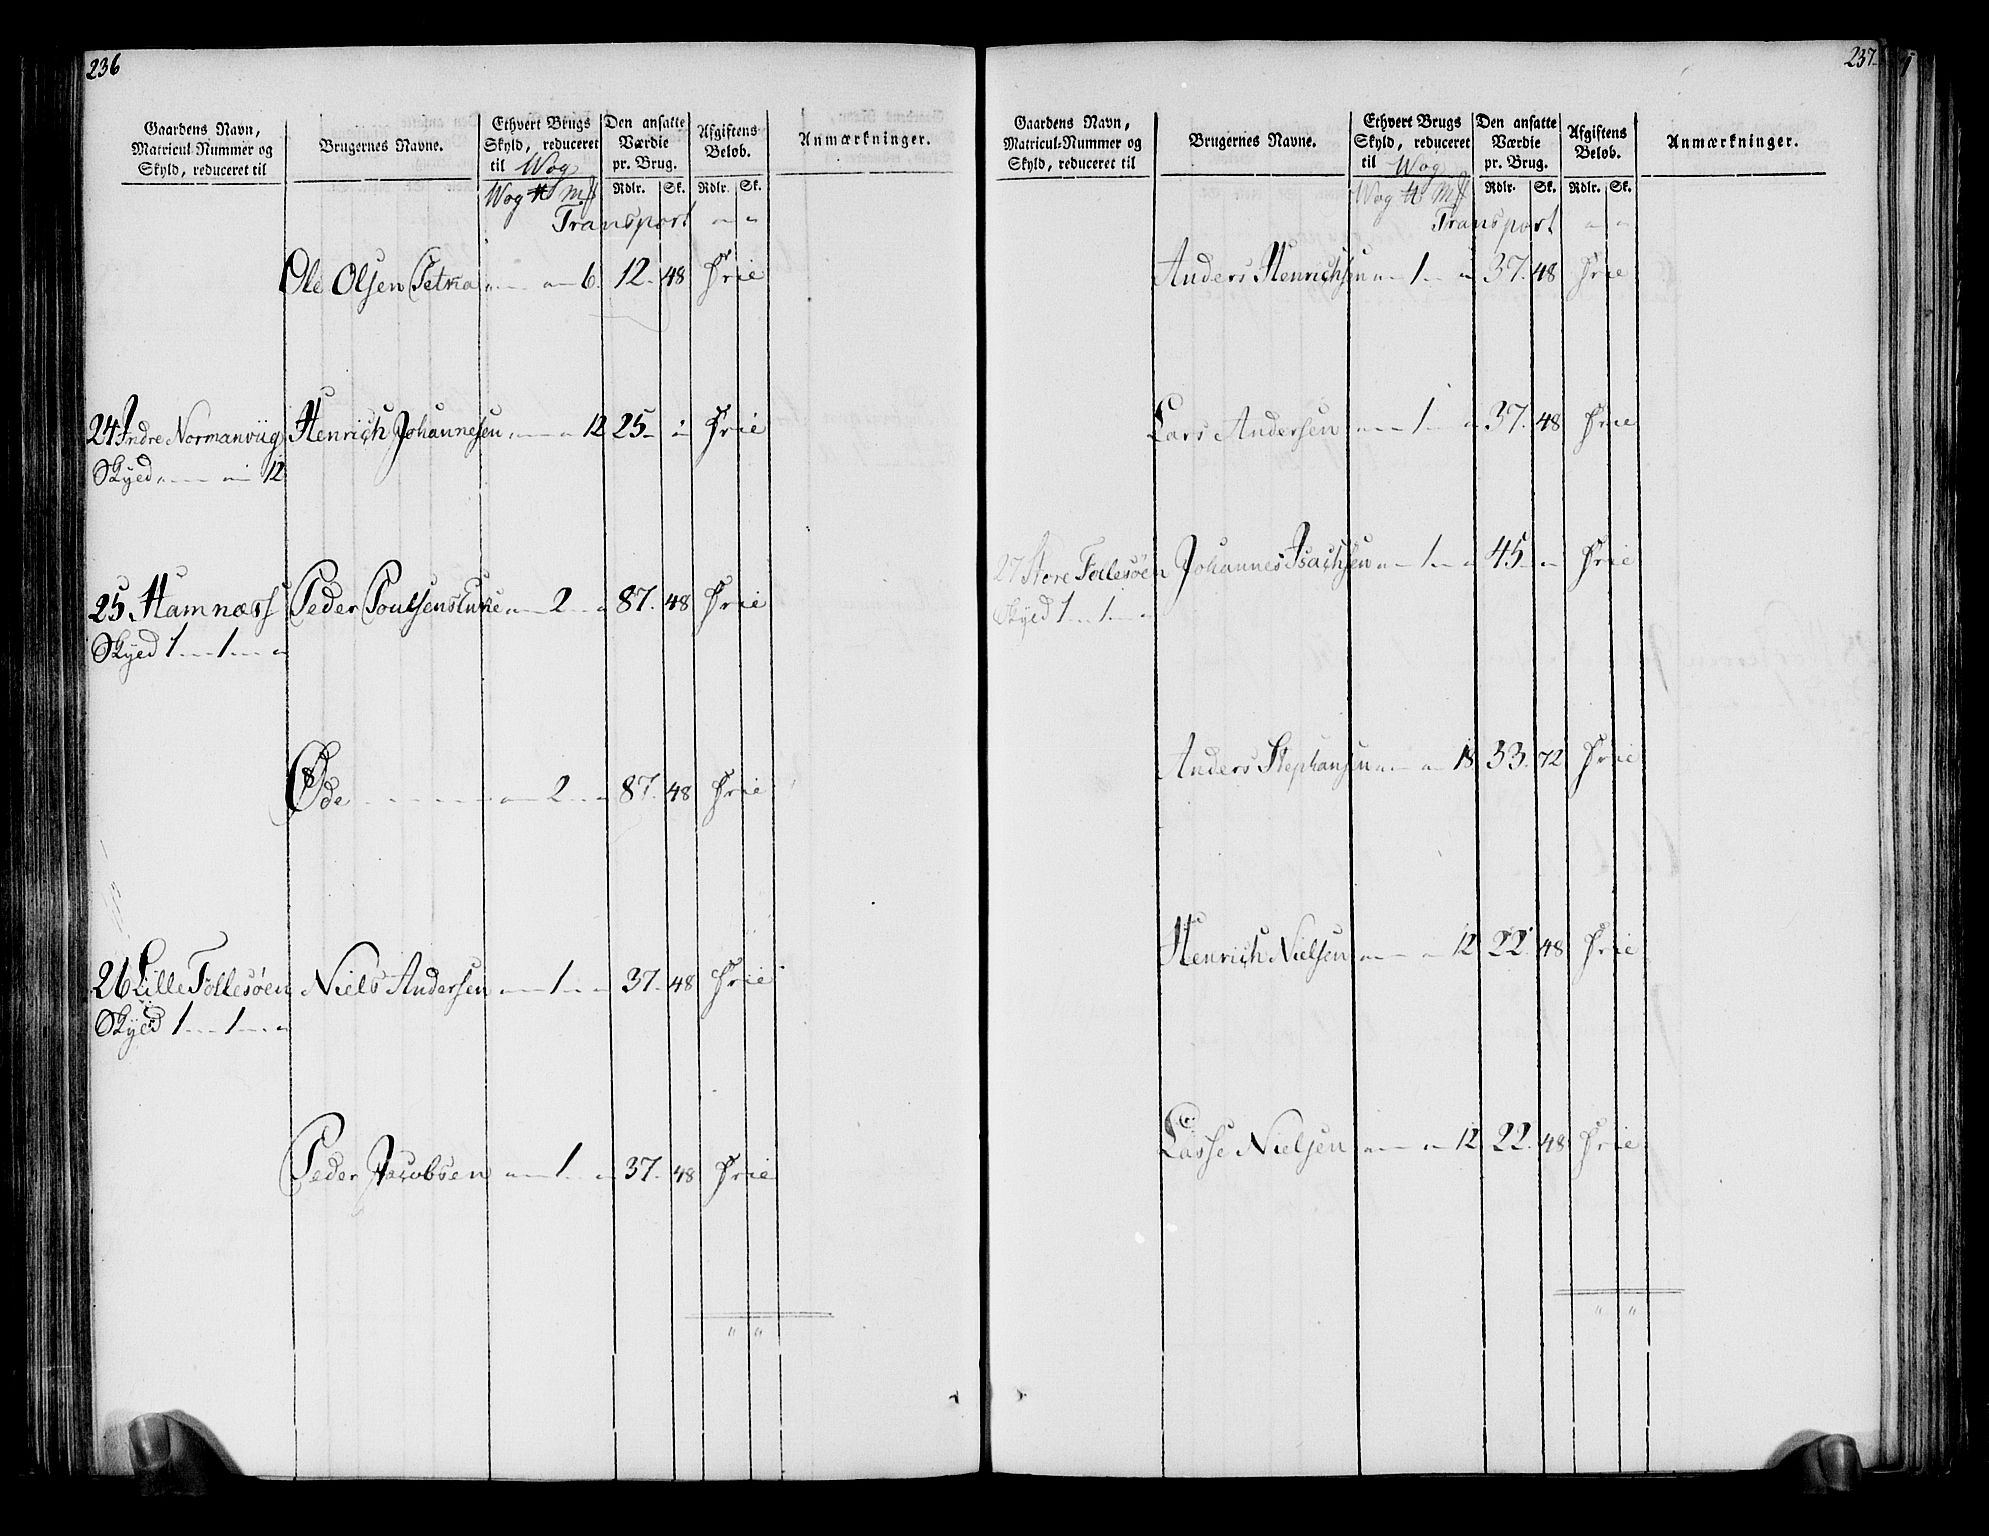 236
Gaardens Navn, Matricul-Nummer og Skyld, reduceret til
Brugernes Navne.
Ethvert Brugs Skyld, reduceret til Wog
Den ansatte Værdie pr. Brug.
Afgiftens Beløb.
Anmærkninger.
Wog ℔ Mk Rdlr. Sk. Rdlr. Sk.
Transport " "
Ole Olsen Petria " " 6. 12. 48 Frie
24 Indre Normanviig Henrich Johannesen " " 12 25 " Frie
Skyed " " 12
25 Hamnæss Peder Poulsens Enke " 2 " 87. 48 Frie
Skyed 1 1 "
Øde " 2 " 87. 48 Frie
26 Lille Follesøen Niels Andersen " 1 " 37. 48 Frie
Skyed 1 1 "
Peder Jacobsen " 1 " 37. 48 Frie
" "
237
Gaardens Navn, Matricul-Nummer og Skyld, reduceret til
Brugernes Navne.
Ethvert Brugs Skyld, reduceret til Wog
Den ansatte Værdie pr. Brug.
Afgiftens Beløb.
Anmærkninger.
Wog ℔ Mk Rdlr. Sk. Rdlr. Sk.
Transport " "
Anders Henrichsen " 1 " 37. 48 Frie
Lars Andersen " 1 " 37. 48 Frie
27 Store Follesøen Johannes Isachsen " 1 " 45 " Frie
Skyed 1 1 "
Anders Stephansen " " 18 33. 72 Frie
Henrich Nielsen " " 12 22. 48 Frie
Lasse Nielsen " " 12 22. 48 Frie
" "